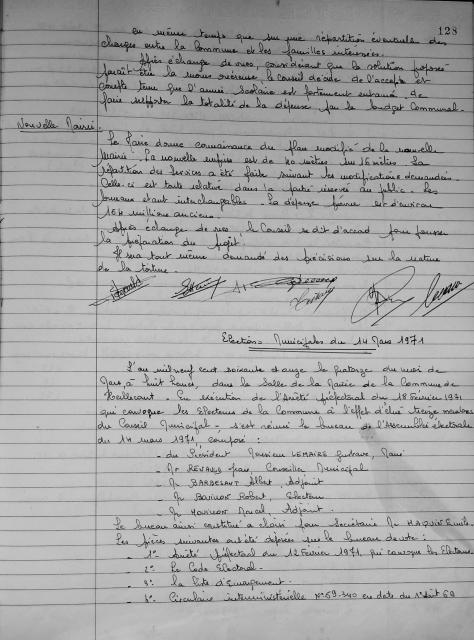 128
en même temps que sur une répartition éventuelle des
charges entre la Commune et les familles intéressées.
Après échange de vues, considérant que la solution proposée
paraît être la moins onéreuse, le Conseil décide de l'accepter et
compte tenu que l'année scolaire est fortement entamée, de
faire supporter la totalité de la dépense par le budget Communal.
Nouvelle Mairie
Le Maire donne connaissance du plan modifié de la nouvelle
Mairie. La nouvelle emprise est de 20 mètres sur 15 mètres. La
répartition des Services a été faite suivant les modifications demandées.
Celle-ci est toute relative dans la partie réservée au public. Les
bureaux étant interchangeables. La dépense prévue est d'environ
millions anciens.
Après échange de vues, le Conseil se dit d'accord pour
la préparation du projet.
Il sera tout même demandé des précisions sur la nature
de la toiture.
Elections Municipales du 14 Mars 1971
L'an mil neuf cent soixante et onze le quatorze du mois de
Mars, à huit heures, dans la Salle de la Mairie de la Commune de
. En exécution de l'Arrêté préfectoral du 18 Février 1971
qui convoque les Electeurs de la Commune à l'effet d'élire treize membres
du Conseil Municipal - s'est réuni le bureau de l'Assemblée électorale
du 14 mars 1971, composé :
- du Président Monsieur LEMAIRE Gustave, Maire
- Mr Jean, Conseiller Municipal
- Mr Albert, Adjoint
- Mr Robert, Electeur
- Mr Marcel, Adjoint.
Le bureau ainsi constitué a choisi pour Secrétaire Mr
Les pièces suivantes ont été déposées sur le bureau de vote :
- 1° Arrêté préfectoral du 12 Février 1971 qui convoque les Electeurs
- 2° Le Code Electoral.
- 3° La liste d'émargement.
- 4° Circulaire interministérielle N° 69.340 en date du 1° Août 69